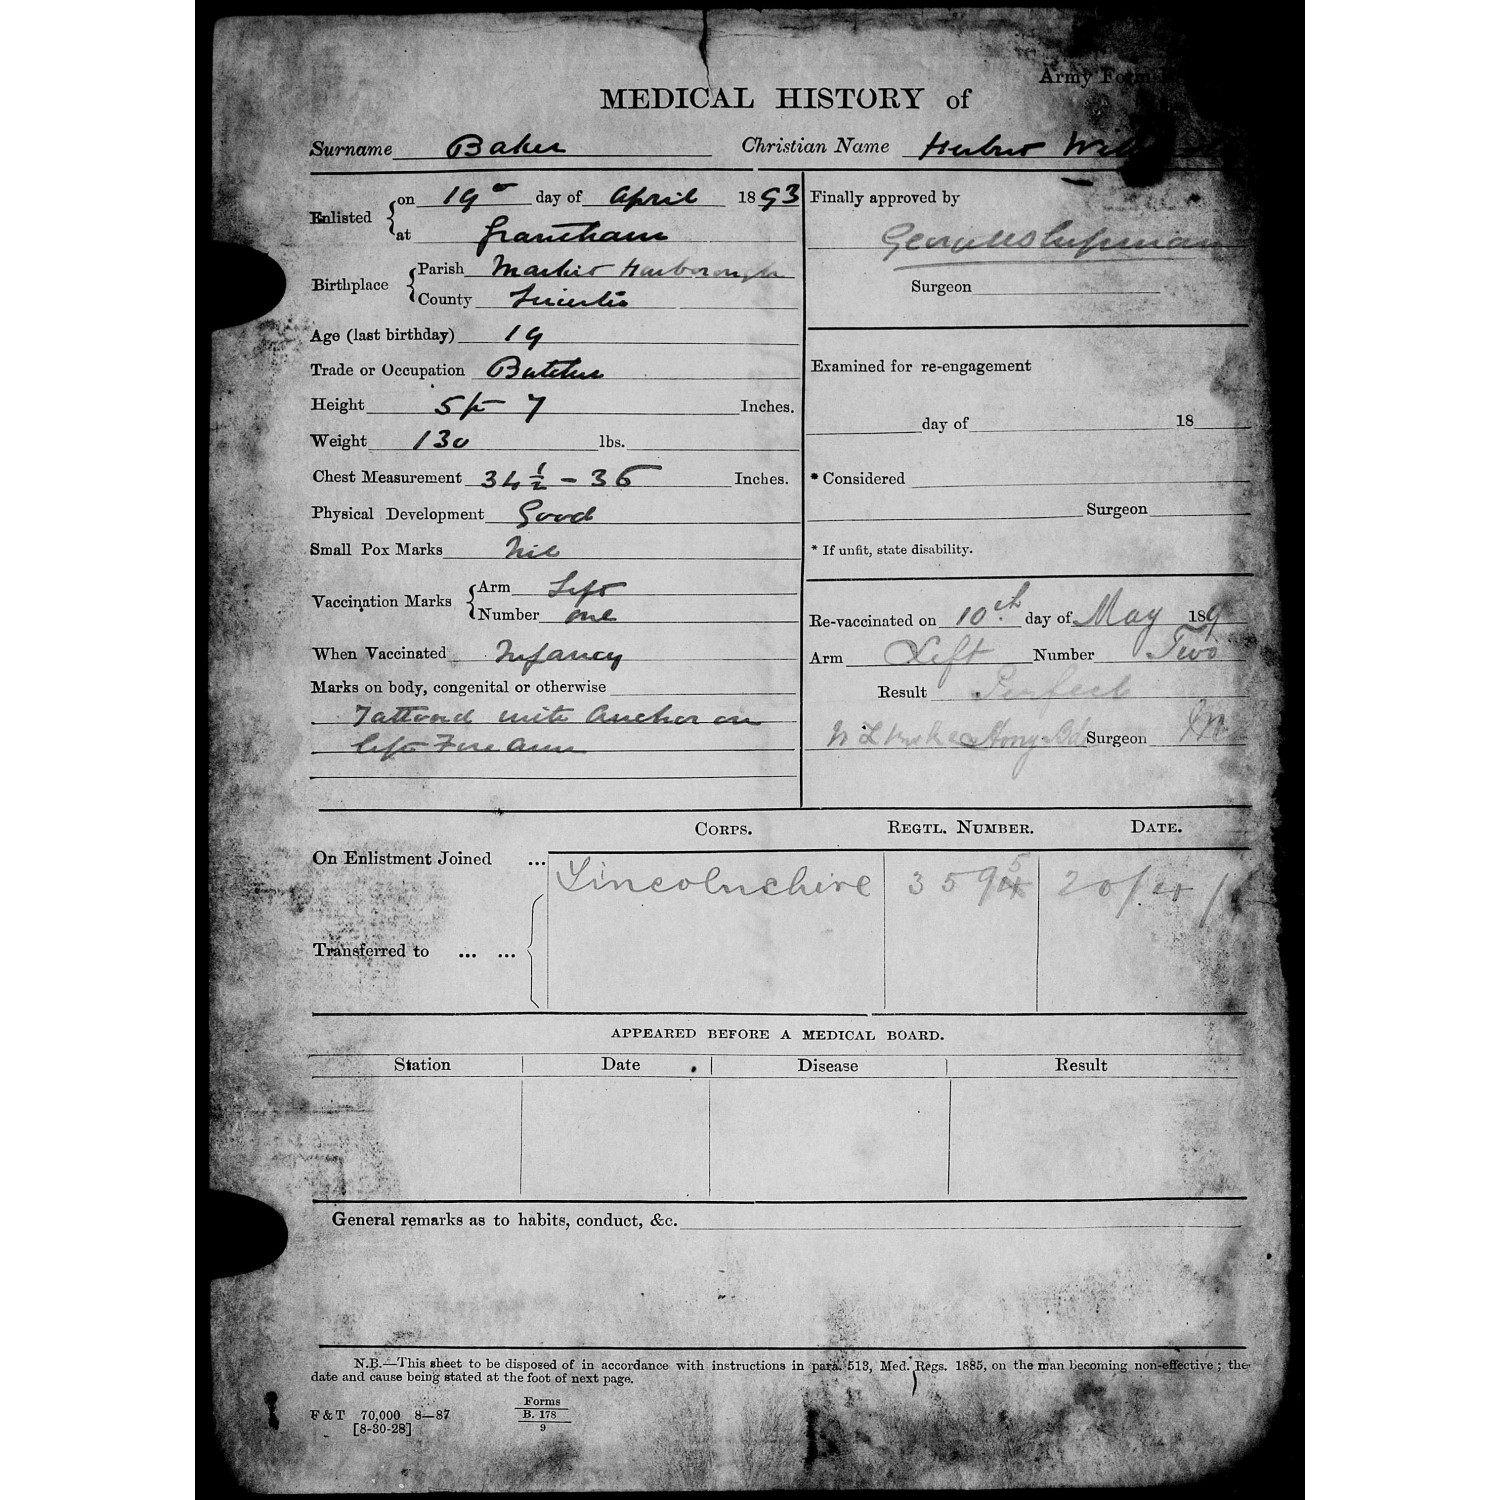 Army Form
MEDICAL HISTORY of
Surname Baker Christian Name Herbert
Enlisted on 19 day of April 1893
at Grantham
Birthplace Parish Market Harborough
County Leicester
Age (last birthday) 19
Trade or Occupation Butcher
Height 5 ft 7 Inches.
Weight 130 lbs.
Chest Measurement 34 1/2 - 36 Inches.
Physical Development Good
Small Pox Marks Nil
Vaccination Marks Arm Left
Number one
When Vaccinated Infancy
Marks on body, congenital or otherwise
Tattooed with Anchor on
left Fore Arm
Finally approved by
Surgeon
Examined for re-engagement
day of 18
* Considered
Surgeon
* If unfit, state disability.
Re-vaccinated on 10th day of May 189
Arm Left Number Two
Result Perfect
Surgeon
CORPS. REGTL. NUMBER. DATE.
On Enlistment Joined ... Lincolnshire 3595 20/4/
Transferred to ... ...
APPEARED BEFORE A MEDICAL BOARD.
Station Date Disease Result
General remarks as to habits, conduct, &c.
N.B.—This sheet to be disposed of in accordance with instructions in para. 513, Med. Regs. 1885, on the man becoming non-effective; the
date and cause being stated at the foot of next page.
F & T 70,000 8—87
[8-30-28]
Forms
B. 178
9